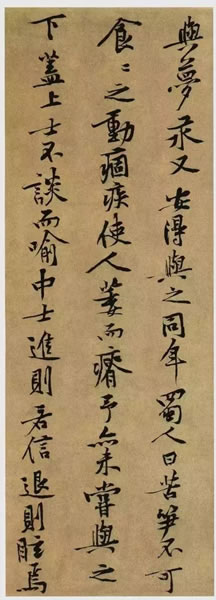 與夢求又安得與之同年蜀人曰苦笋不可
食〻之動痼疾使人萎而瘠予亦未嘗與之
下蓋上士不談而喻中士進則若信退則眩焉